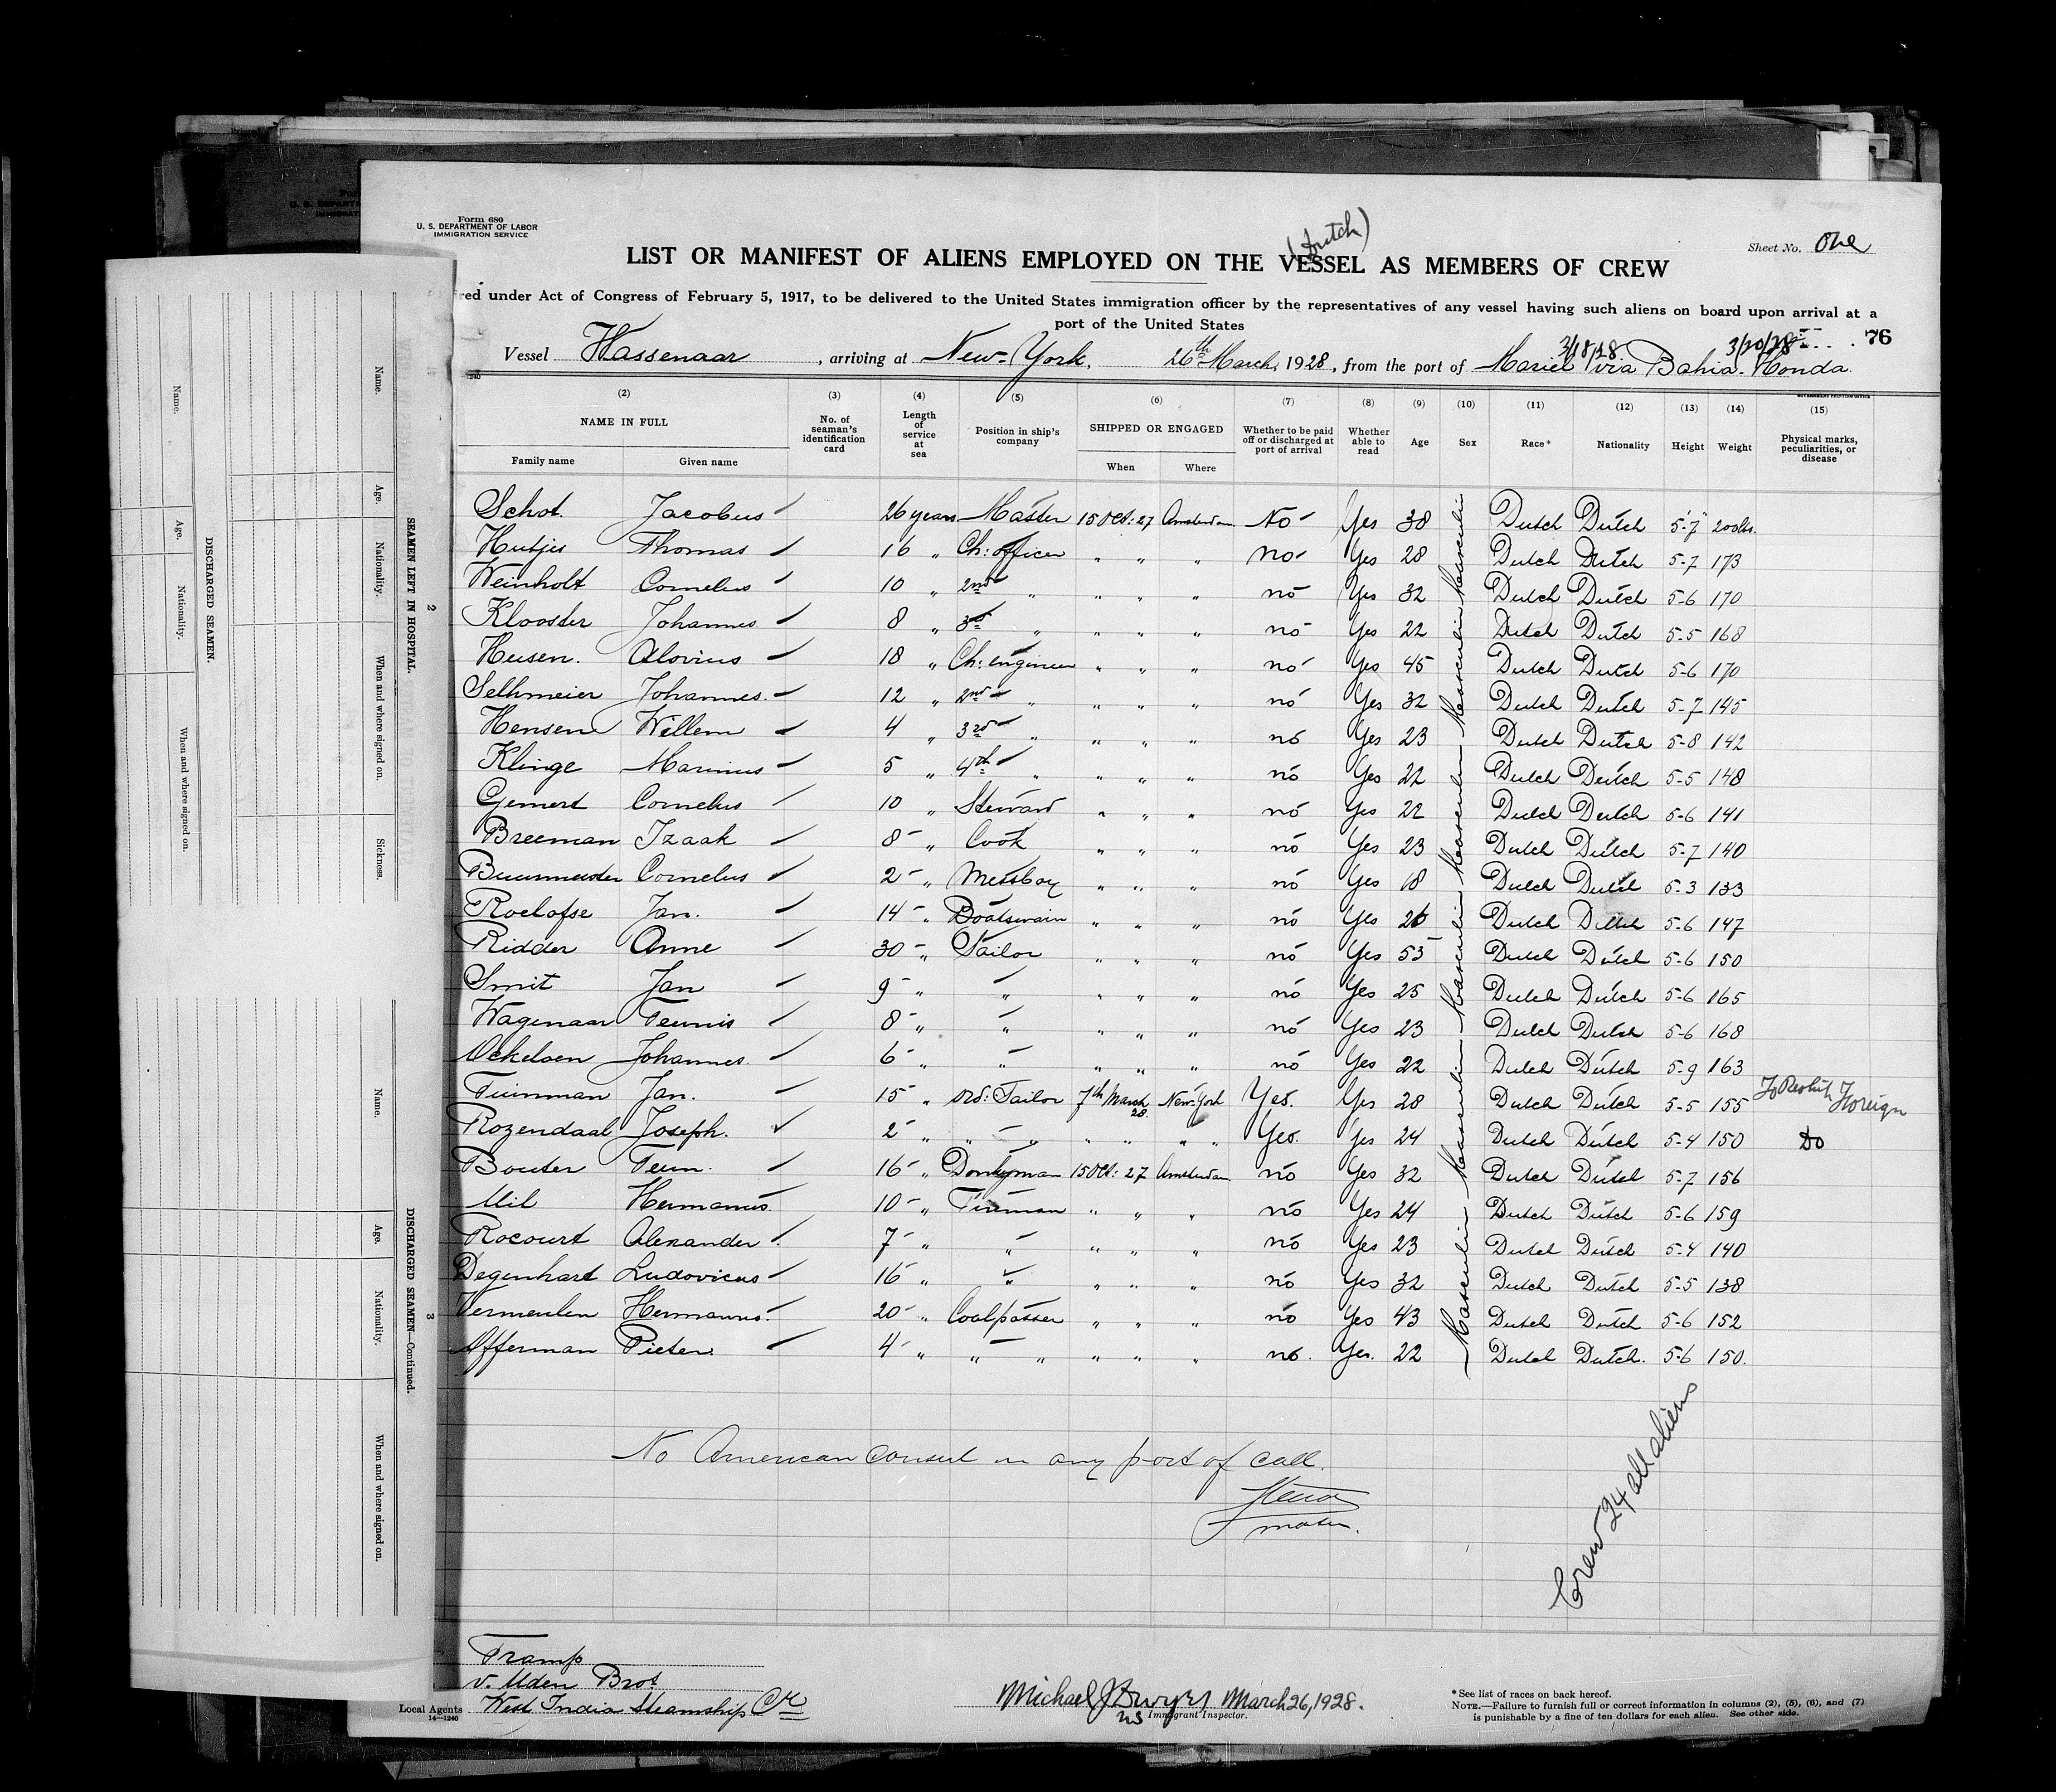 Form 680
U. S. DEPARTMENT OF LABOR
IMMIGRATION SERVICE
(Dutch)
Sheet No. One
LIST OR MANIFEST OF ALIENS EMPLOYED ON THE VESSEL AS MEMBERS OF CREW
red under Act of Congress of February 5, 1917, to be delivered to the United States immigration officer by the representatives of any vessel having such aliens on board upon arrival at a
port of the United States
76
3/18/28 3/20/28
Vessel Wassenaar, arriving at New-York, 26th March, 1928, from the port of Mariel via Bahia-Honda
(2) (3) (4) (5) (6) (7) (8) (9) (10) (11) (12) (13) (14) (15)
NAME IN FULL No. of seaman's identification card Length of service at sea Position in ship's company SHIPPED OR ENGAGED Whether to be paid off or discharged at port of arrival Whether able to read Age Sex Race* Nationality Height Weight Physical marks, peculiarities, or disease
Family name Given name When Where
Schot. Jacobus 26 years Master 15 Oct: 27 Amsterdam No Yes 38 Dutch Dutch 5-7 200lbs.
Hutjis Thomas 16 " Ch: officer " " " no Yes 28 Dutch Dutch 5-7 173
Weinholt Cornelus 10 " 2nd " " " " no Yes 32 Dutch Dutch 5-6 170
Klooster Johannes 8 " 3d " " " " no Yes 22 Dutch Dutch 5-5 168
Heusen. Alovius 18 " Ch: engineer " " " no Yes 45 Dutch Dutch 5-6 170
Selhmeier Johannes. 12 " 2nd " " " " no Yes 32 Dutch Dutch 5-7 145
Hensen Willem 4 " 3rd " " " " no Yes 23 Dutch Dutch 5-8 142
Klinge Marinus 5 " 4th " " " " no Yes 22 Dutch Dutch 5-5 148
Gemert Cornelus 10 " Steward " " " no Yes 22 Dutch Dutch 5-6 141
Breeman Izaak 8 " Cook " " " no Yes 23 Dutch Dutch 5-7 140
Buurmeester Cornelus 2 " Messboy " " " no Yes 18 Dutch Dutch 5-3 133
Roelofse Jan. 14 " Boatswain " " " no Yes 26 Dutch Dutch 5-6 147
Ridder Anne 30 " Sailor " " " no Yes 55 Dutch Dutch 5-6 150
Smit Jan 9 " " " " " no Yes 25 Dutch Dutch 5-6 165
Wagenaar Teunis 8 " " " " " no Yes 23 Dutch Dutch 5-6 168
Ockeloen Johannes. 6 " " " " " no Yes 22 Dutch Dutch 5-9 163
Tuinman Jan. 15 " ord: Sailor 7th March 28 New-York Yes. Yes 28 Dutch Dutch 5-5 155 To Reship Foreign
Rozendaal Joseph. 2 " " " " " " " Yes. Yes 24 Dutch Dutch 5-4 150 Do
Bouter Teun. 16 " Donkyman 15 Oct: 27 Amsterdam no Yes 32 Dutch Dutch 5-7 156
Mil Hermanus. 10 " Fireman " " " no Yes 24 Dutch Dutch 5-6 159
Rocourt Alexander 7 " " " " " no Yes 23 Dutch Dutch 5-4 140
Degenhart Ludovicus 16 " " " " " no Yes 32 Dutch Dutch 5-5 138
Vermeulen Hermanus. 20 " Coalpasser " " " no Yes 43 Dutch Dutch 5-6 152
Offerman Pieter. 4 " " " " " " no. Yes. 22 Dutch Dutch. 5-6 150.
No American consul in any port of call.
master.
Crew 24 all aliens
Tramp
v. Uden Bros
Local Agents West India Steamship Co
14-1240
Michael J Dwyer March 26, 1928.
Immigrant Inspector.
* See list of races on back hereof.
NOTE.—Failure to furnish full or correct information in columns (2), (5), (6), and (7)
is punishable by a fine of ten dollars for each alien. See other side.
SEAMEN LEFT IN HOSPITAL.
2
Name. Age. Nationality. When and where signed on. Sickness.
DISCHARGED SEAMEN.
Name. Age. Nationality. When and where signed on.
DISCHARGED SEAMEN—Continued.
3
Name. Age. Nationality. When and where signed on.